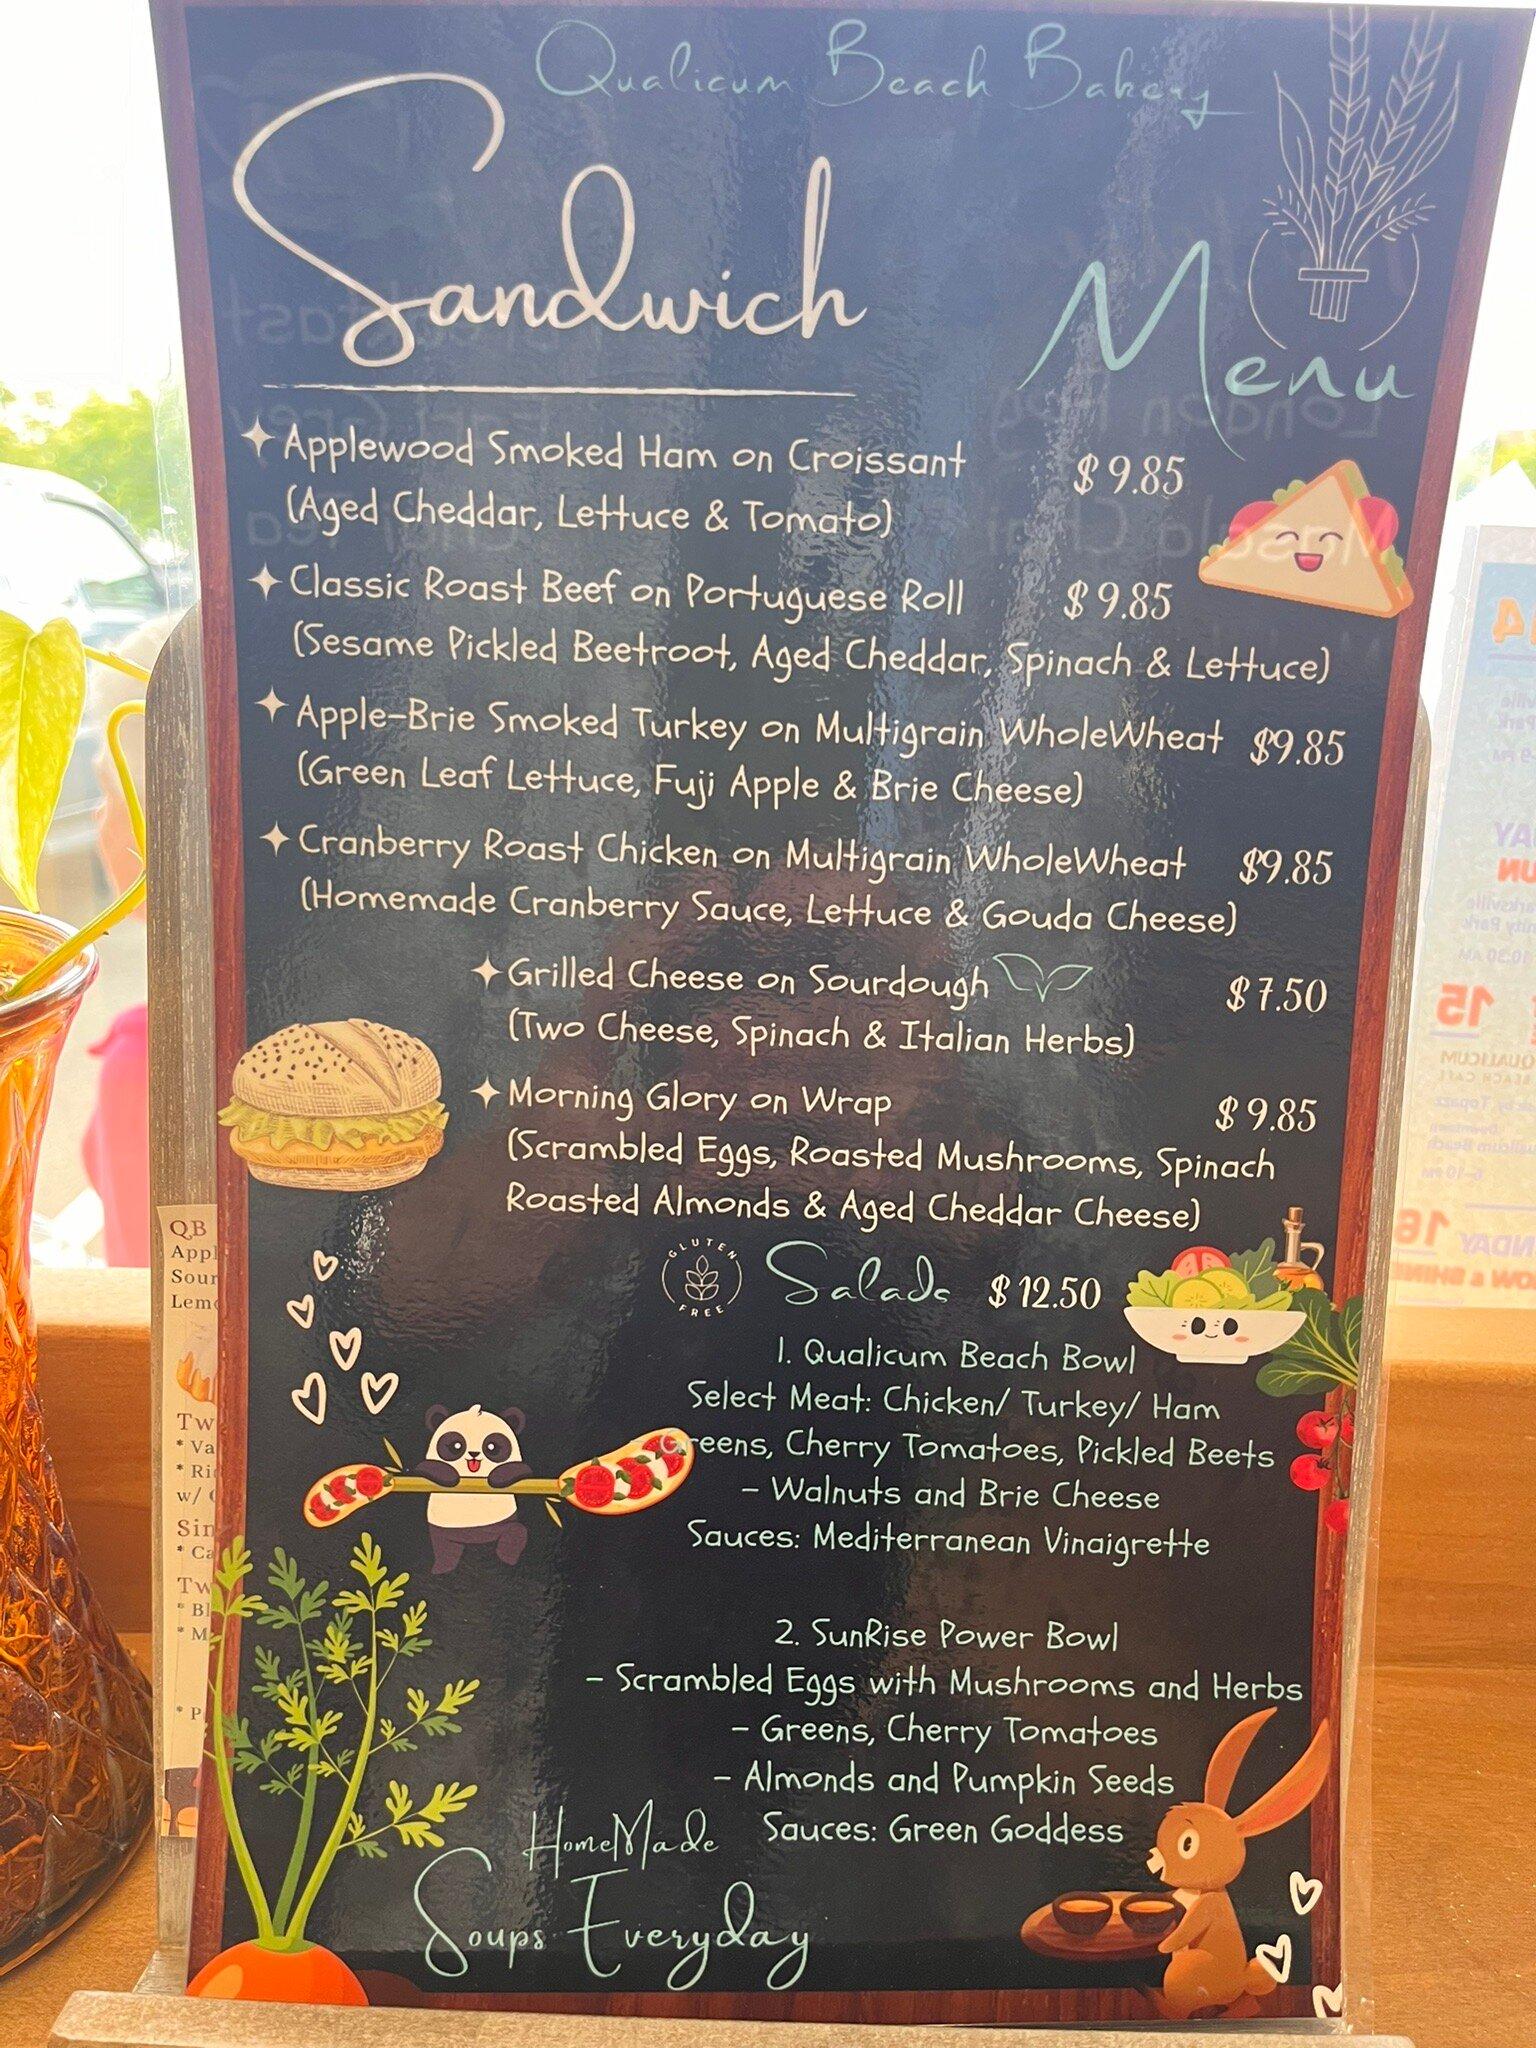 Qualicum Beach Bakery
Sandwich
Menu
Applewood Smoked Ham on Croissant $9.85
(Aged Cheddar, Lettuce & Tomato)
Classic Roast Beef on Portuguese Roll $9.85
(Sesame Pickled Beetroot, Aged Cheddar, Spinach & Lettuce)
Apple-Brie Smoked Turkey on Multigrain WholeWheat $9.85
(Green Leaf Lettuce, Fuji Apple & Brie Cheese)
Cranberry Roast Chicken on Multigrain WholeWheat $9.85
(Homemade Cranberry Sauce, Lettuce & Gouda Cheese)
Grilled Cheese on Sourdough $7.50
(Two Cheese, Spinach & Italian Herbs)
Morning Glory on Wrap $9.85
(Scrambled Eggs, Roasted Mushrooms, Spinach
Roasted Almonds & Aged Cheddar Cheese)
GLUTEN FREE
Salads $12.50
1. Qualicum Beach Bowl
Select Meat: Chicken/ Turkey/ Ham
Greens, Cherry Tomatoes, Pickled Beets
- Walnuts and Brie Cheese
Sauces: Mediterranean Vinaigrette
2. SunRise Power Bowl
- Scrambled Eggs with Mushrooms and Herbs
- Greens, Cherry Tomatoes
- Almonds and Pumpkin Seeds
Sauces: Green Goddess
HomeMade
Soups Everyday
QB
w/